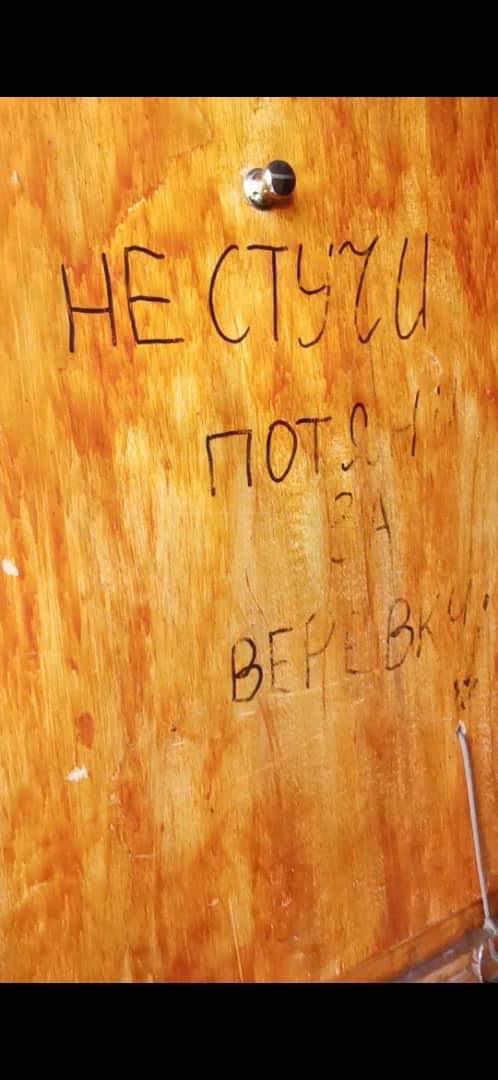 НЕ СТУЧИ
ПОТЯНИ
ЗА
ВЕРЕВКУ